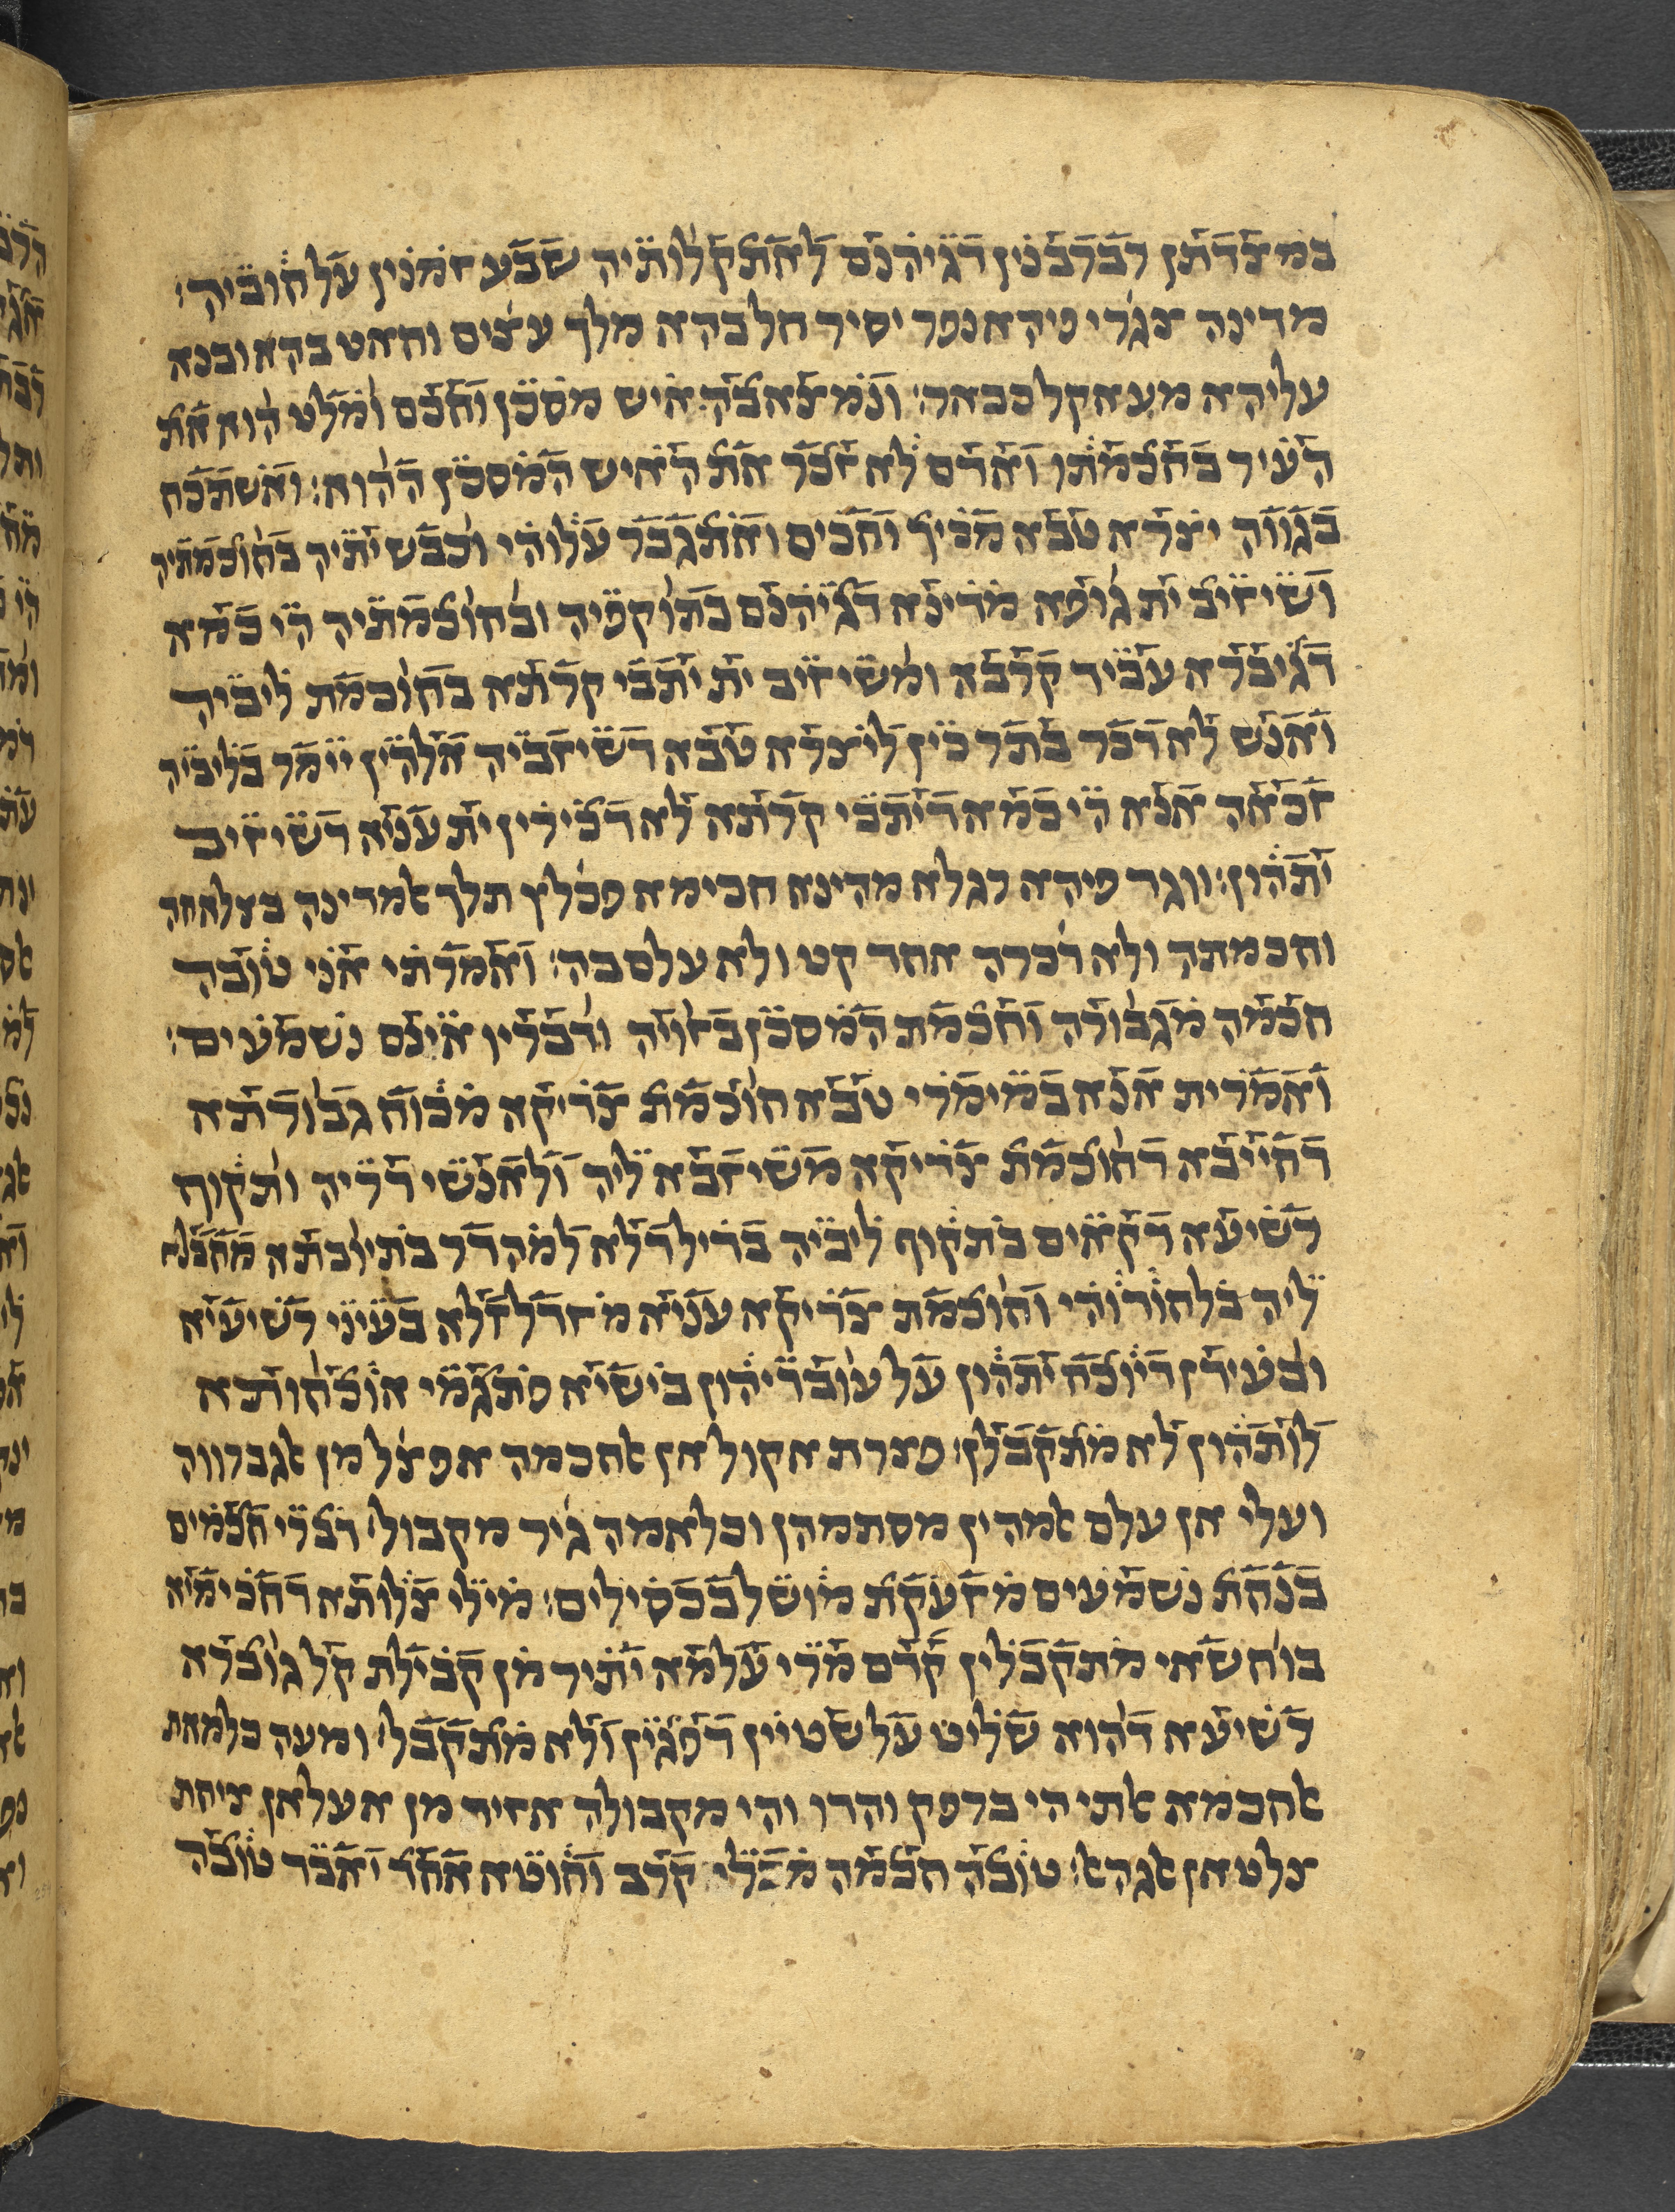 במצדתן רברבנין דגיהנם לאתקלותיה שבע זמנין על חוביה׃
מדינה צגרי פיהא נפר יסיר חל בהא מלך עצים ואחאט בהא ובנא
עליהא מעאקל כבאר׃ ונמצא בה איש מסכן וחכם ומלט הוא את
העיר בחכמתו ואדם לא זכר את האיש המסכן ההוא׃ ואשתכח
בגווה יצרא טבא מכיך וחכים ואתגבר עלוהי וכבש יתיה בחוכמתיה
ושיזיב ית גופא מדינא דגיהנם בתוקפיה ובחוכמתיה הי כמא
דגיברא עביד קרבא ומשיזיב ית יתבי קרתא בחוכמת ליביה
ואנש לא דכר בתר כין ליצרא טבא דשיזביה אלהין יימר בליביה
זכאה אנא הי כמא דיתבי קרתא לא דכירין ית עניא דשיזיב
יתהון׃ ווגד פיהא רגלא מהינא חכימא פכלץ תלך אמדינה בצלאחה
וחכמתה ולא דכרה אחד קט ולא עלם בה׃ ואמרתי אני טובה
חכמה מגבורה וחכמת המסכן בזויה ודבריו אינם נשמעים׃
ואמרית אנא במימרי טבא חוכמת צדיקא מכוח גבורתא
דחייבא דחוכמת צדיקא משיזבא ליה ולאנשי דריה ותקוף
רשיעא דקאים בתקוף ליביה בדיל דלא למהדר בתיובתא מחבלא
ליה בלחודוהי וחוכמת צדיקא עניא מזדלזלא בעיני רשיעיא
ובעידן דיוכח יתהון על עובדיהון בישיא פתגמי אוכחותא
לותהון לא מתקבלן׃ פצרת אקול אן אחכמה אפצל מן אגברווה
ועלי אן עלם אמהין מסתמהן וכלאמה גיר מקבול׃ דברי חכמים
בנחת נשמעים מזעקת מושל בכסילים׃ מילי צלותא דחכימיא
בוחשאי מתקבלין קדם מרי עלמא יתיר מן קבילת קל גוברא
רשיעא דהוא שליט על שטיין דפגין ולא מתקבל׃ ומעה כלמאת
אחכמא אתי הי ברפק והדו והי מקבולה אזיד מן אעלאן ציחת
צלט אן אגהא׃ טובה חכמה מכלי קרב וחוטא אחד יאבד טובה